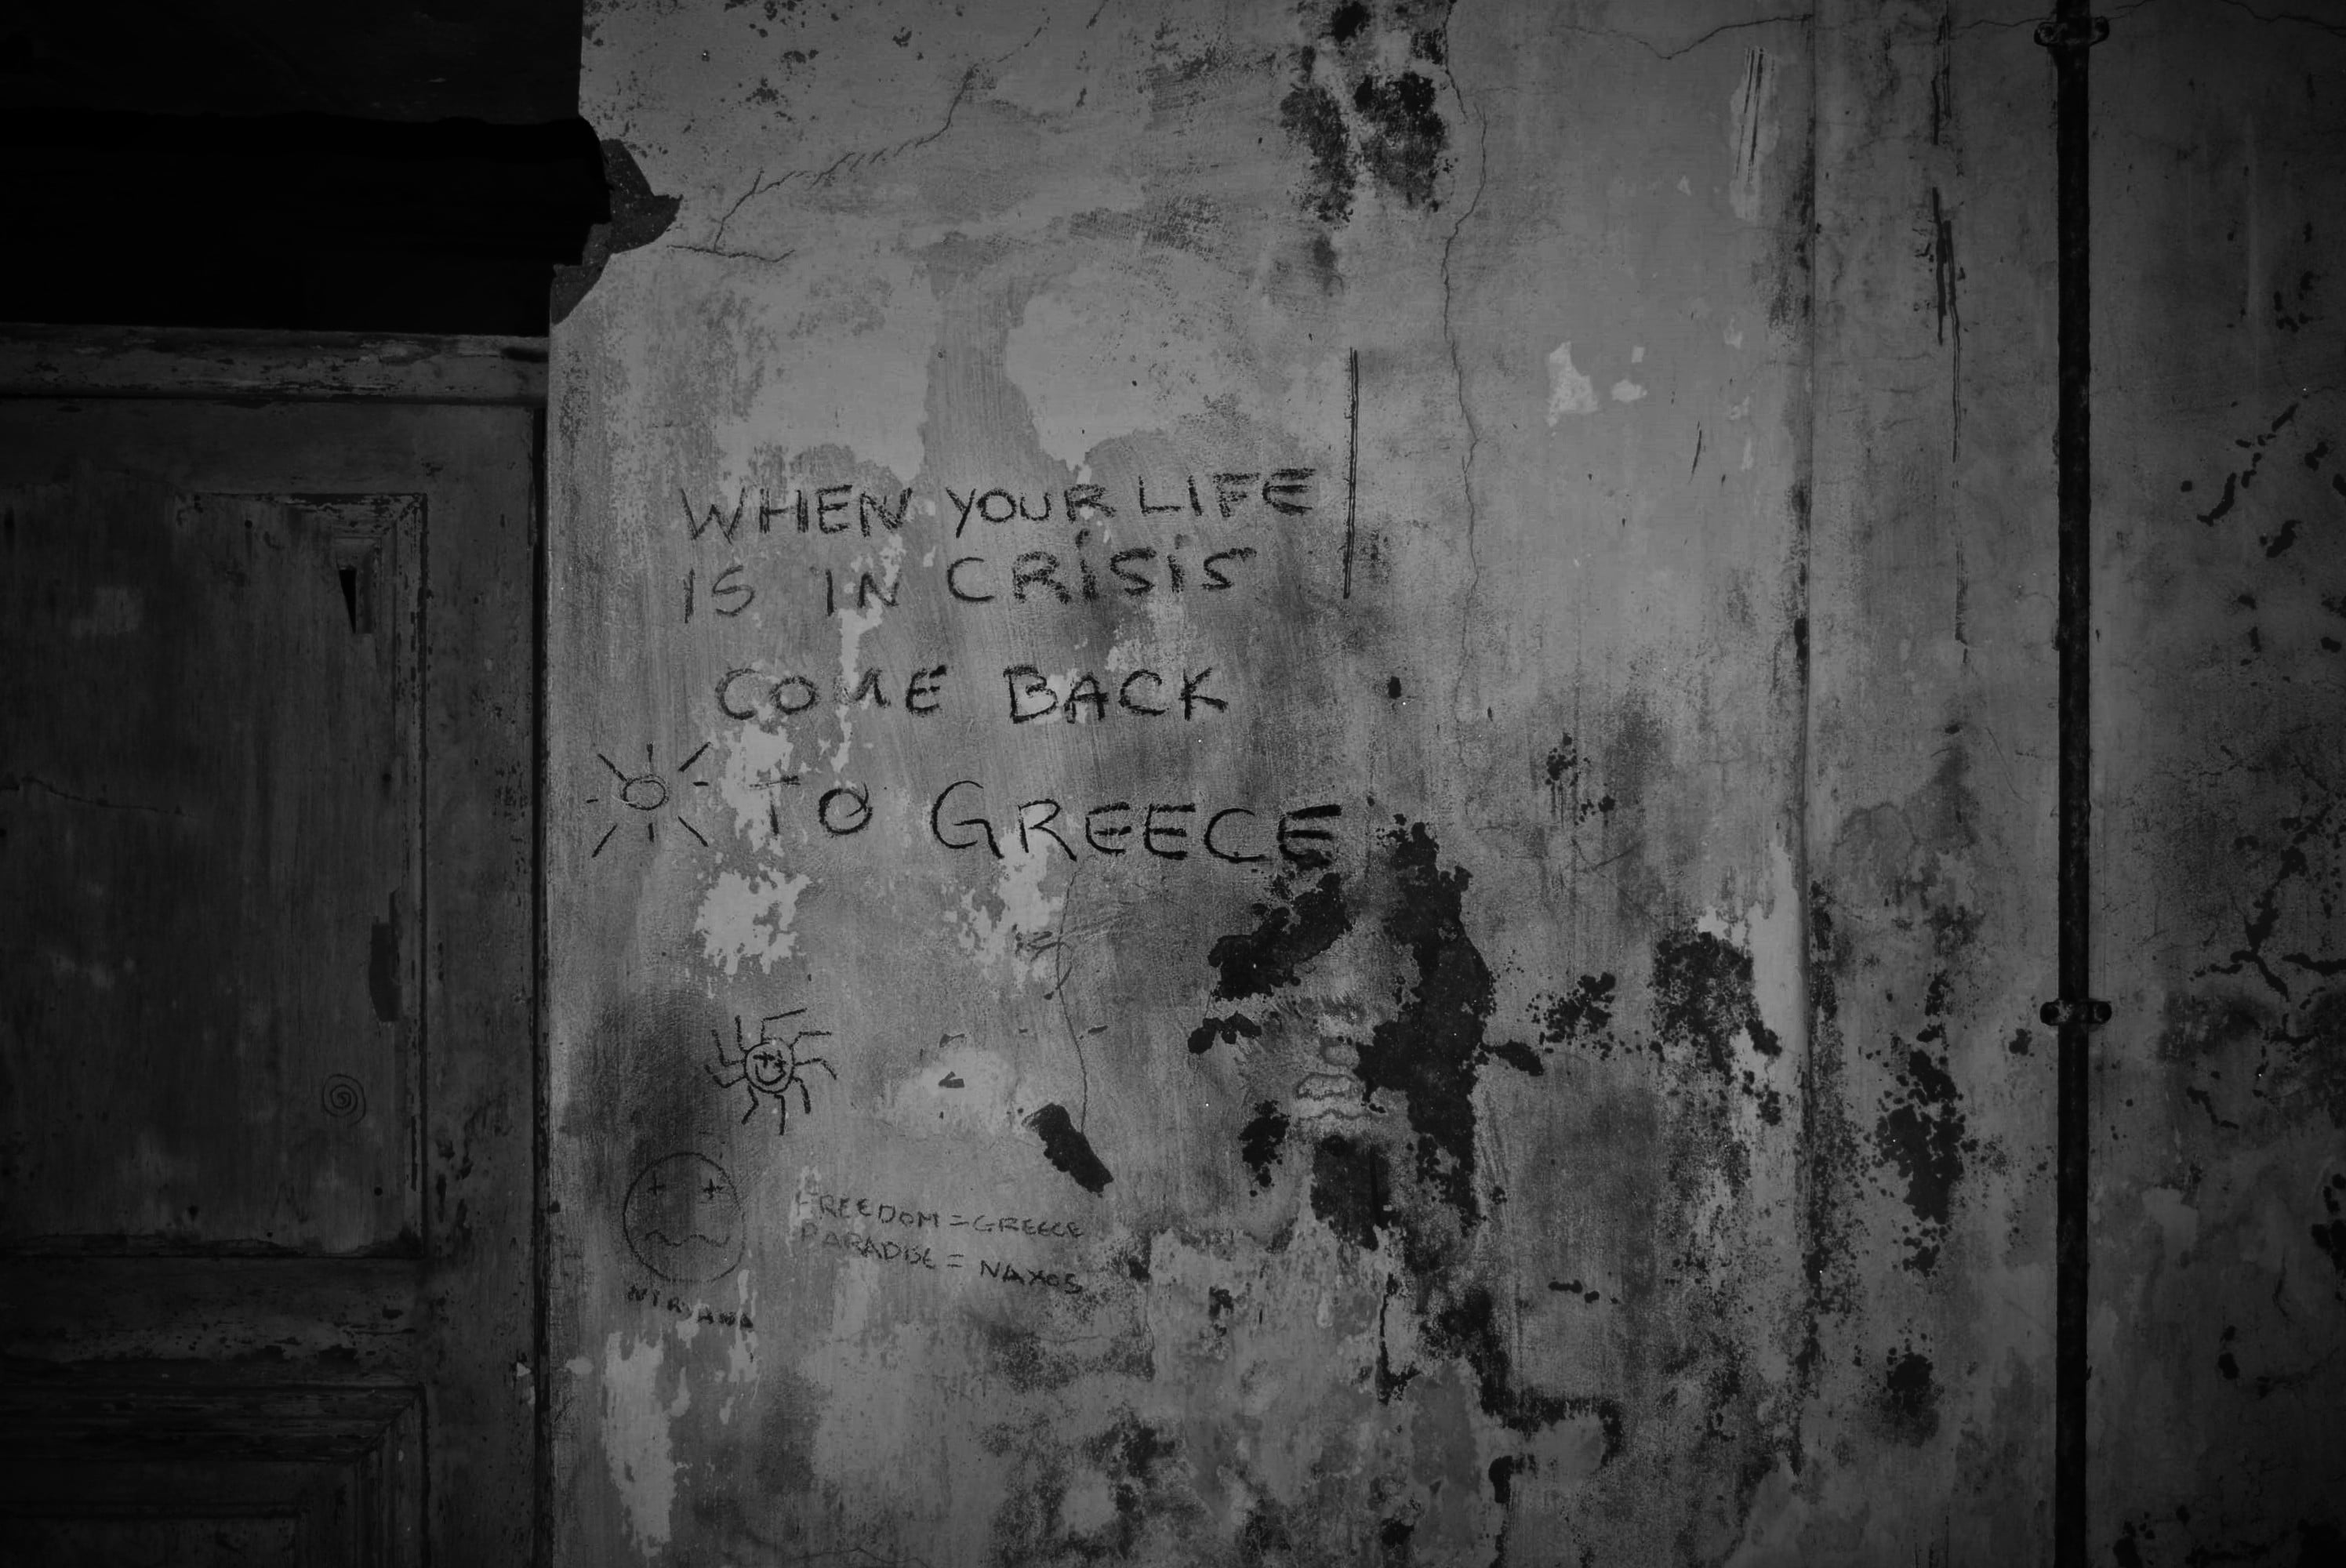 WHEN YOUR LIFE
IS IN CRISIS
COME BACK
TO GREECE
FREEDOM = GREECE
PARADISE = NAXOS
NIRVANA